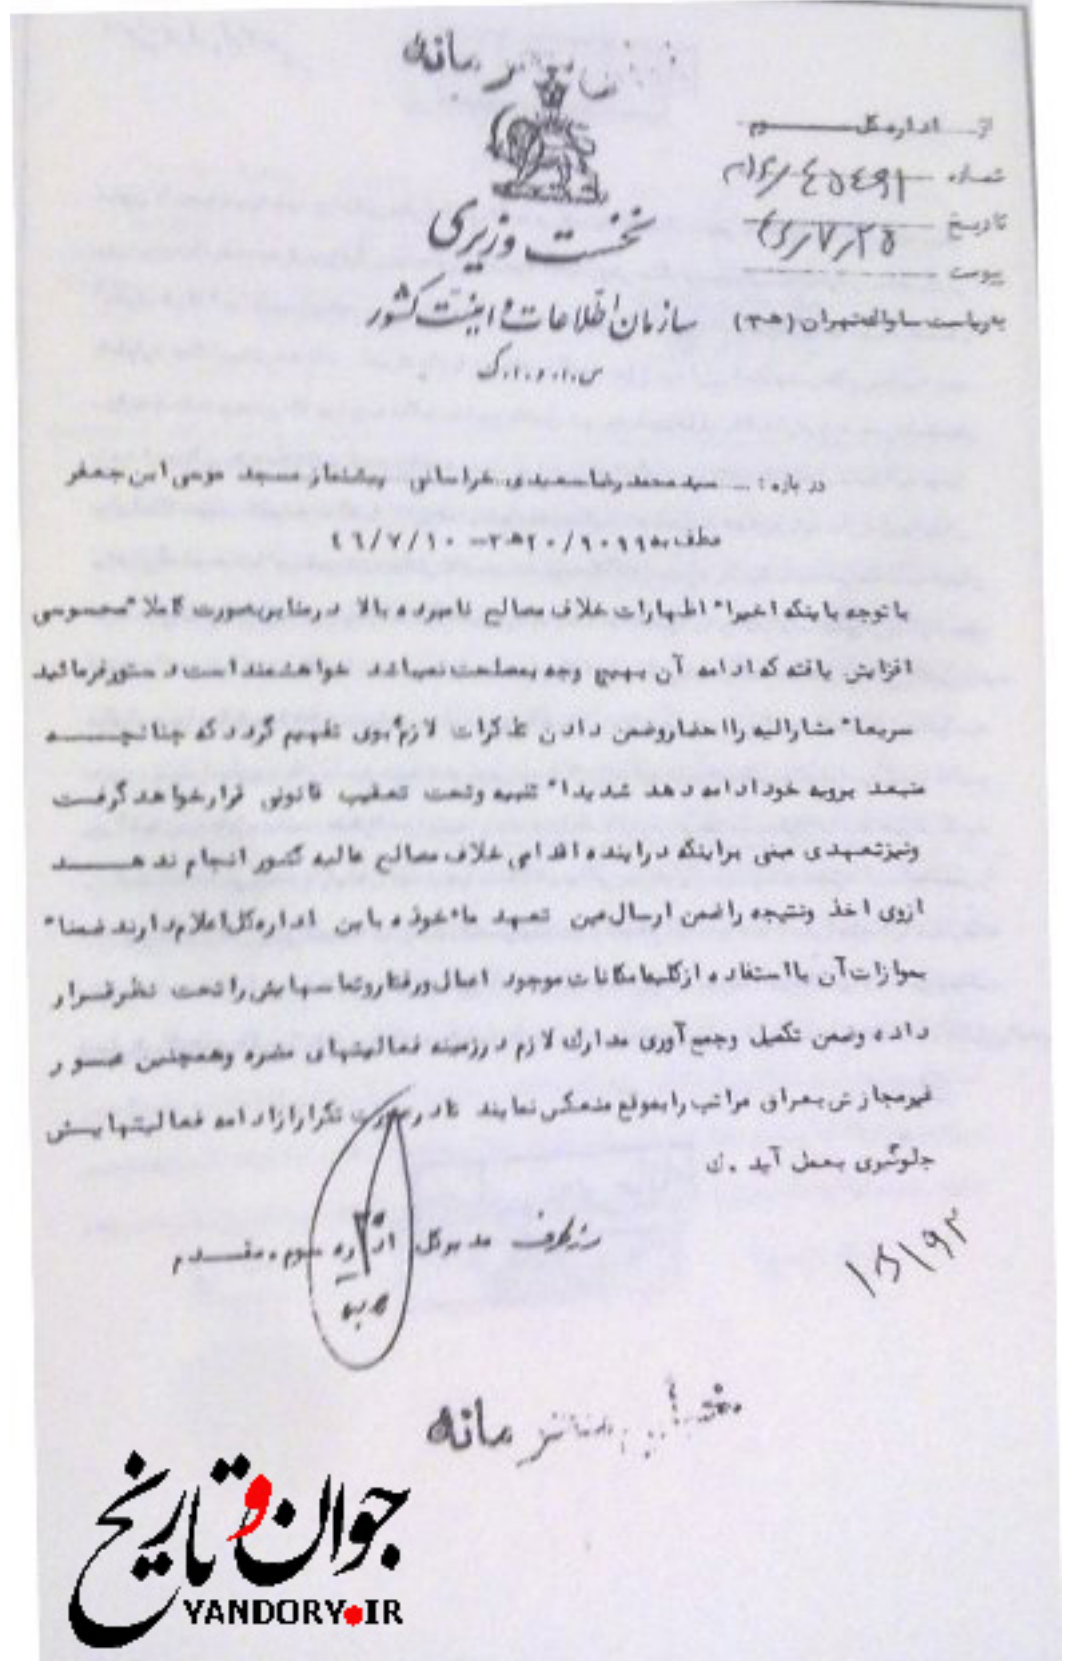 از اداره کل سوم
شماره ۳۱۶/۴۵۴۹۲
تاریخ ۴۶/۷/۲۵
پیوست
به ریاست ساواک تهران (۲۰ه۳)
نخست وزیری
سازمان اطلاعات و امنیت کشور
س.ا.و.ا.ک
درباره : ــ سید محمد رضا سعیدی خراسانی پیشنماز مسجد موسی ابن جعفر
عطف به ۹۰۹۹/۲۰ه۳ – ۴۶/۷/۱۰
با توجه باینکه اخیرا" اظهارات خلاف مصالح نامبرده بالا در منابر بصورت کاملا "محسوسی
افزایش یافته که ادامه آن بهیچ وجه بمصلحت نمیباشد خواهشمند است دستور فرمائید
سریعا" مشارالیه را احضار و ضمن دادن تذکرات لازم بوی تفهیم گردد که چنانچـــه
منبعد برویه خود ادامه دهد شدیدا" تنبیه و تحت تعقیب قانونی قرار خواهد گرفت
و نیز تعهدی مبنی بر اینکه در اینده اقدامی خلاف مصالح عالیه کشور انجام ندهـــد
از وی اخذ و نتیجه را ضمن ارسال عین تعهد ما"خوذه باین اداره کل اعلام دارند ضمنا"
بموازات آن با استفاده از کلیه امکانات موجود اعمال و رفتار و تماسهایش را تحت نظر قـرار
داده و ضمن تکمیل و جمع آوری مدارک لازم در زمینه فعالیتهای مضره و همچنین عبـور
غیر مجازش بعراق مراتب را بموقع منعکس نمایند تا در صورت تکرار از ادامه فعالیتهایـش
جلوگیری بعمل آید .ک
از طرف مدیرکل اداره سوم . مقـــدم
جوان و تاریخ
YANDORY.IR